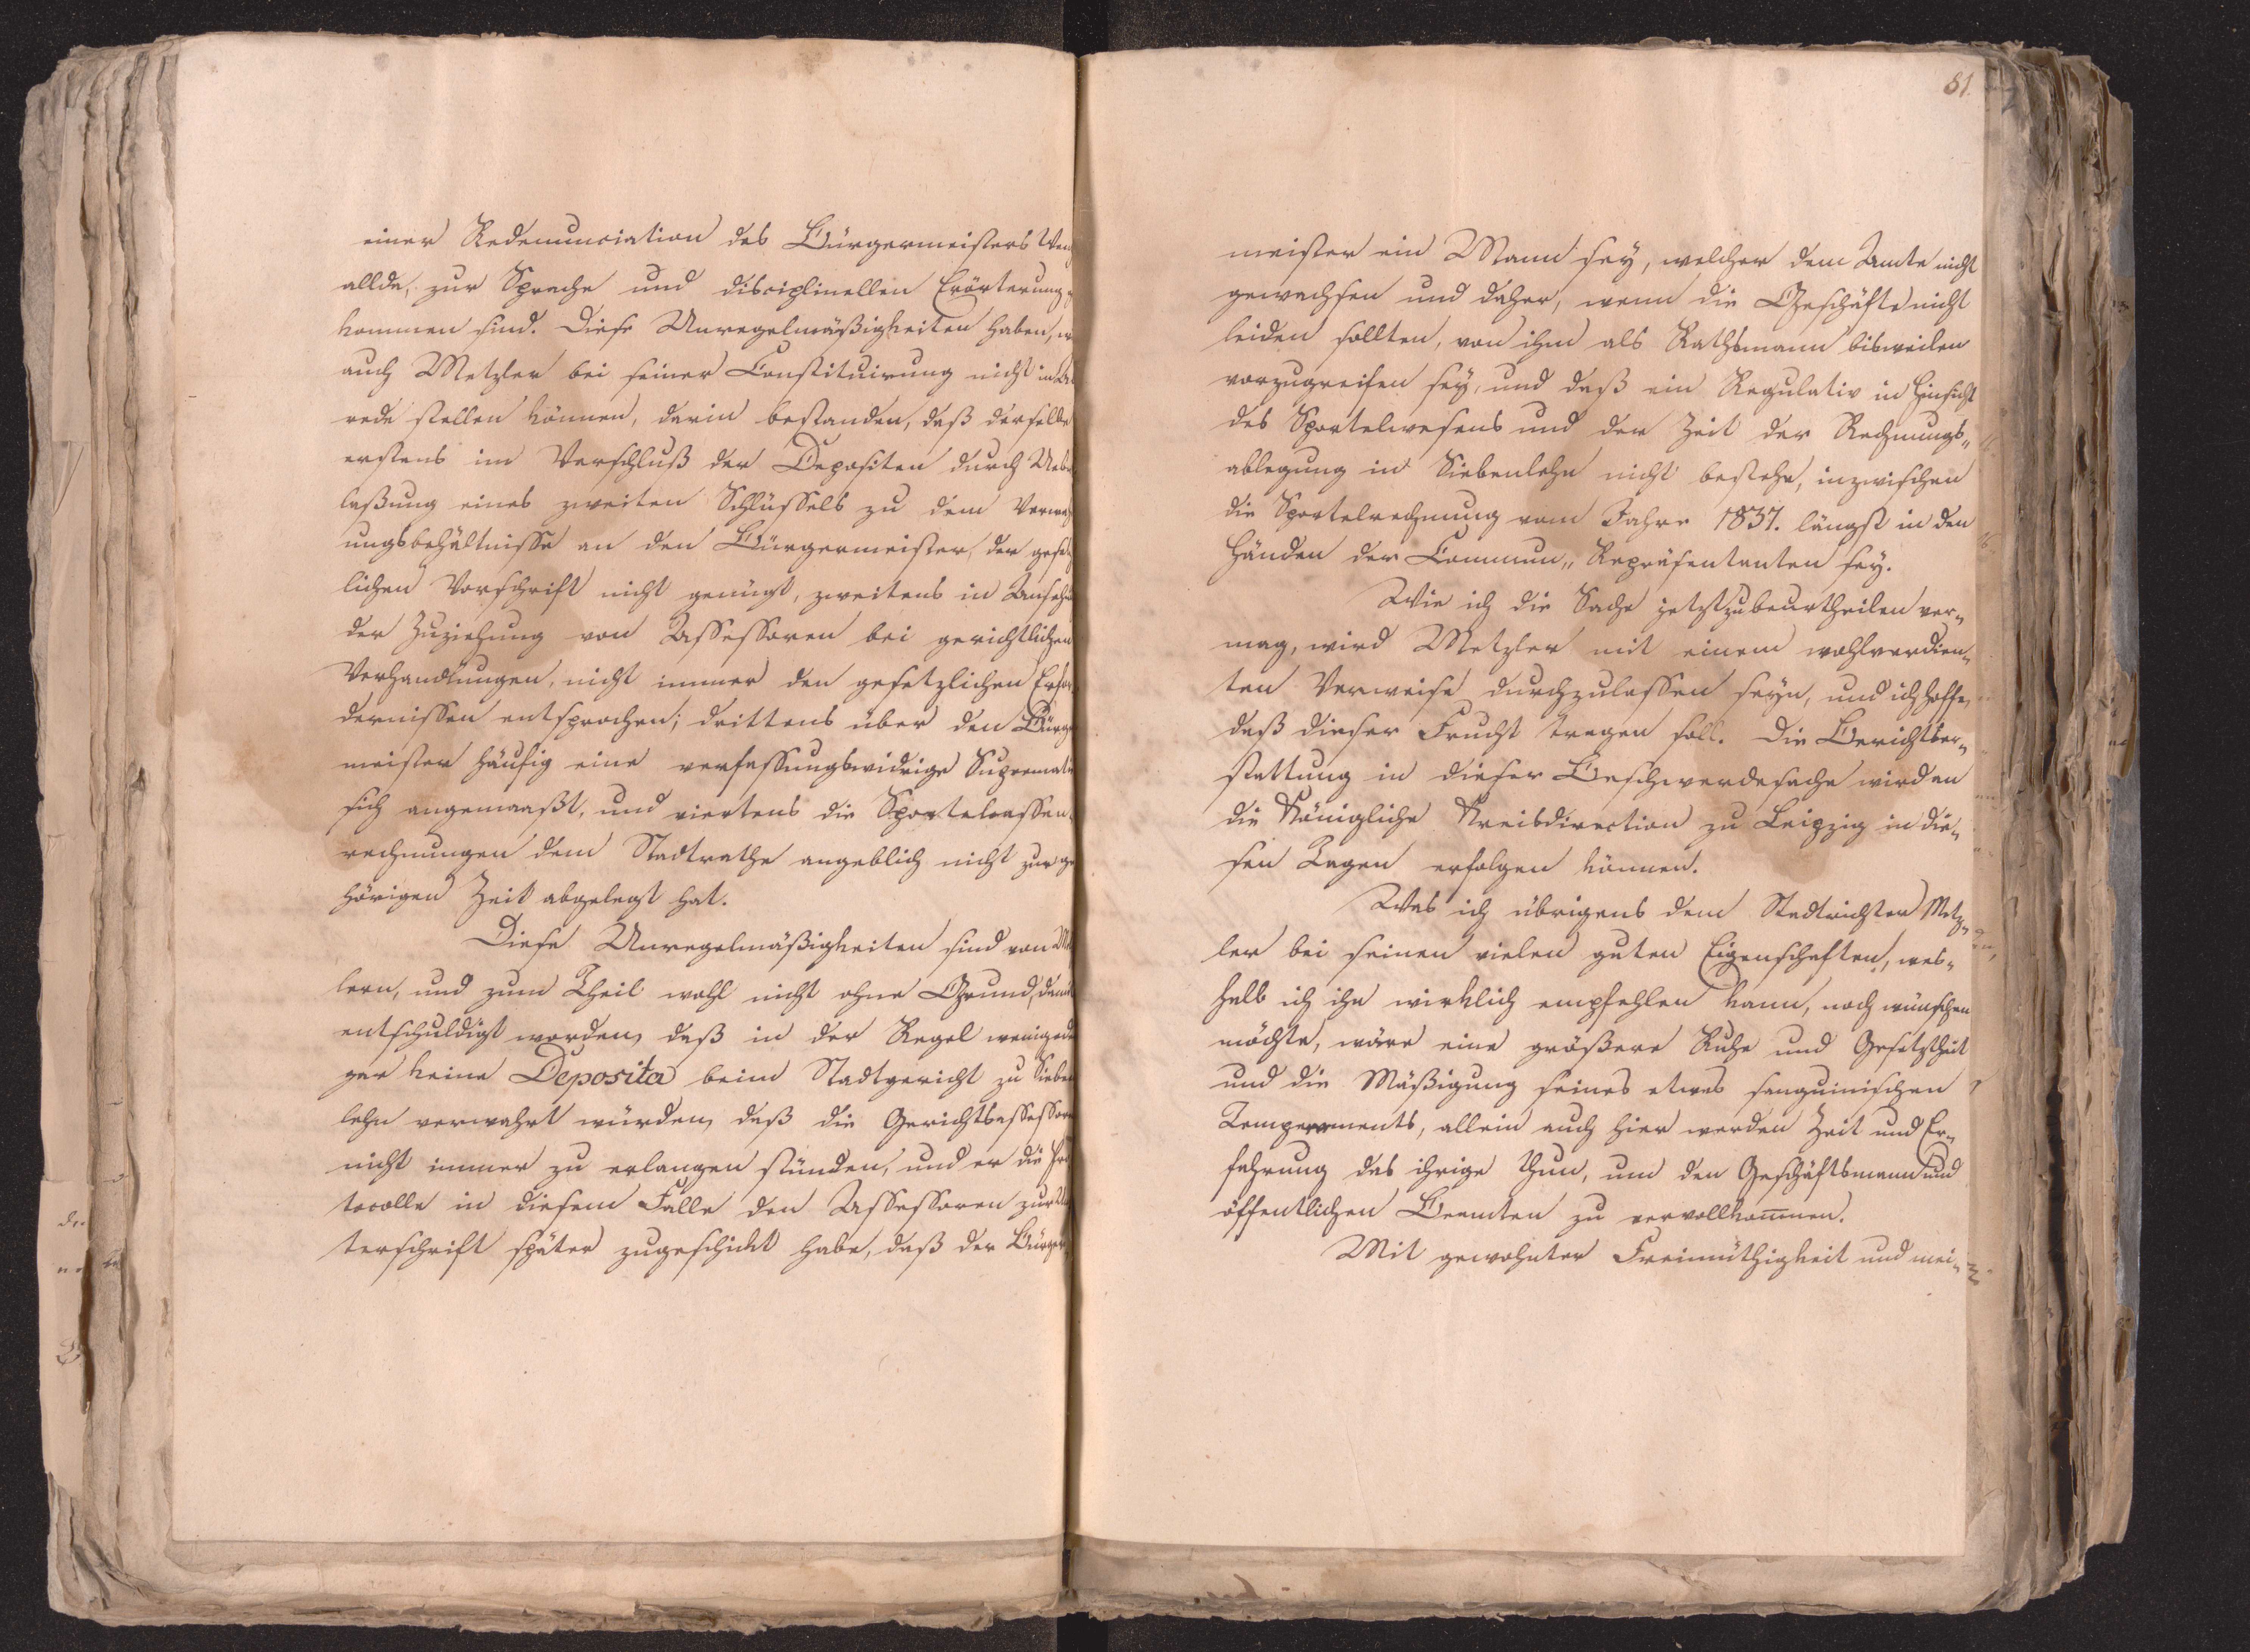 einer Redenunciation des Bürgermeisters
allda, zur Sprache und disciplinellen Erörterung
kommen sind. Diese Unregelmäßigkeiten haben,
auch Metzler bei seiner Constituirung nicht in
rede stellen können, darin bestanden, daß derselbe
erstens im Verschluß der Depositen durch Ueber
laßung eines zweiten Schlüssels zu dem Verwah
ungsbehältnisse an den Bürgermeister, der gesetz
lichen Vorschrift nicht genügt, zweitens in Ansehu
der Zuziehung von Assessoren bei gerichtlichen
Verhandlungen, nicht immer den gesetzlichen Erfor
dernissen entsprochen; drittens über den Bürger
meister häufig eine verfassungswidrige Suprematie
sich angemaaßt, und viertens die Sportelcassen
rechnungen dem Stadtrathe angeblich nicht zur ge
hörigen Zeit abgelegt hat.
Diese Unregelmäßigkeiten sind von Me
lern, und zum Theil wohl nicht ohne Grund, damit
entschuldigt worden, daß in der Regel wenig oder
gar keine Deposita beim Stadtgericht zu Sieben
lehn verwahrt würden, daß die Gerichtsassessoren
nicht immer zu erlangen stünden, und er die Pro
tocolle in diesem Falle den Assessoren zur Un
terschrift später zugeschickt habe, daß der Bürger
81.
meister ein Mann sey, welcher dem Amte nicht
gewachsen und daher, wenn die Geschäfte nicht
leiden sollten, von ihm als Rathsmann bisweilen
vorzugreifen sey, und daß ein Regulativ in Hinsicht
des Sportelwesens und der Zeit der Rechnungs„
ablegung in Siebenlehn nicht bestehe, inzwischen
die Sportelrechnung vom Jahre 1837. längst in den
Händen der Commun„ Repräsentanten sey.
Wie ich die Sache jetzt zu beurtheilen ver„
mag, wird Metzler mit einem wohlverdien„
ten Verweise durchzulassen seyn, und ich hoffe,
daß dieser Frucht tragen soll. Die Berichtser„
stattung in dieser Beschwerdesache wird an
die Königliche Kreisdirection zu Leipzig in die„
sen Tagen erfolgen können.
Was ich übrigens dem Stadtrichter Metz„
ler bei seinen vielen guten Eigenschaften, wes„
halb ich ihn wirklich empfehlen kann, noch wünschen
möchte, wäre eine größere Ruhe und Gesetztheit
und die Mäßigung seines etwas sanguinischen
Temperaments, allein auch hier werden Zeit und Er„
fahrung das ihrige thun, um den Geschäftsmann und
öffentlichen Beamten zu vervollkommnen.
Mit gewohnter Freimüthigkeit und mei„